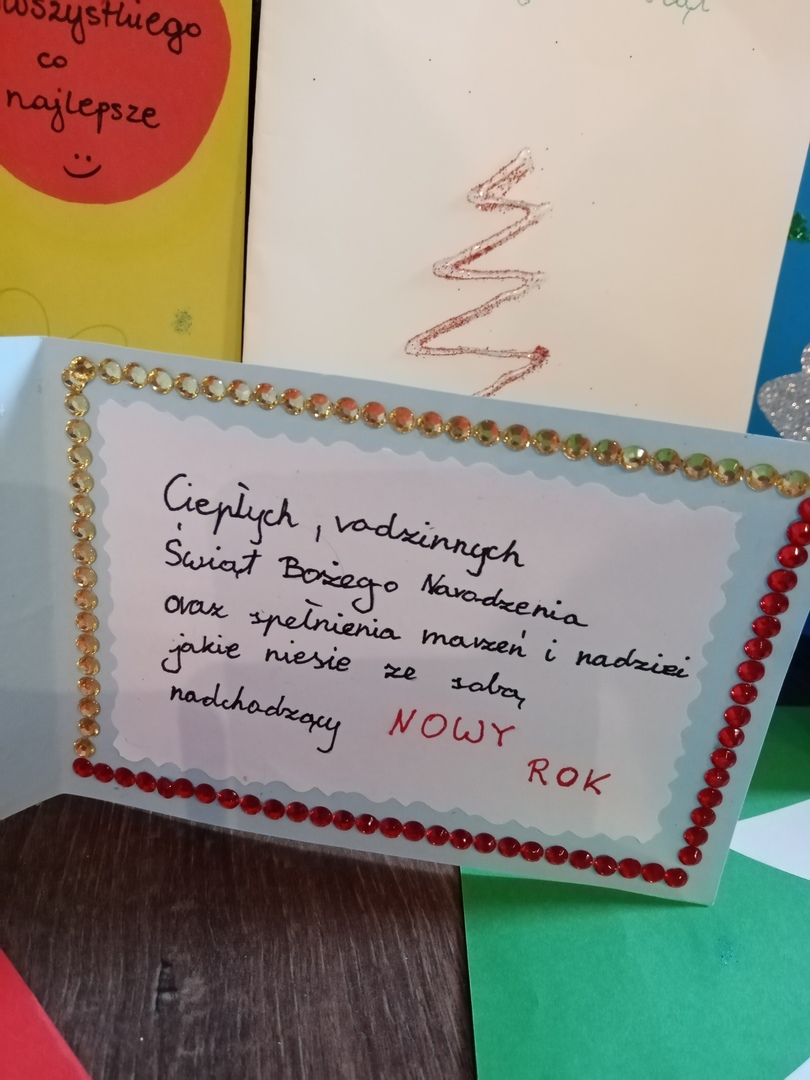 wszystkiego
co
najlepsze
Ciepłych, rodzinnych
Świąt Bożego Narodzenia
oraz spełnienia marzeń i nadziei
jakie niesie ze sobą
nadchodzący NOWY
ROK